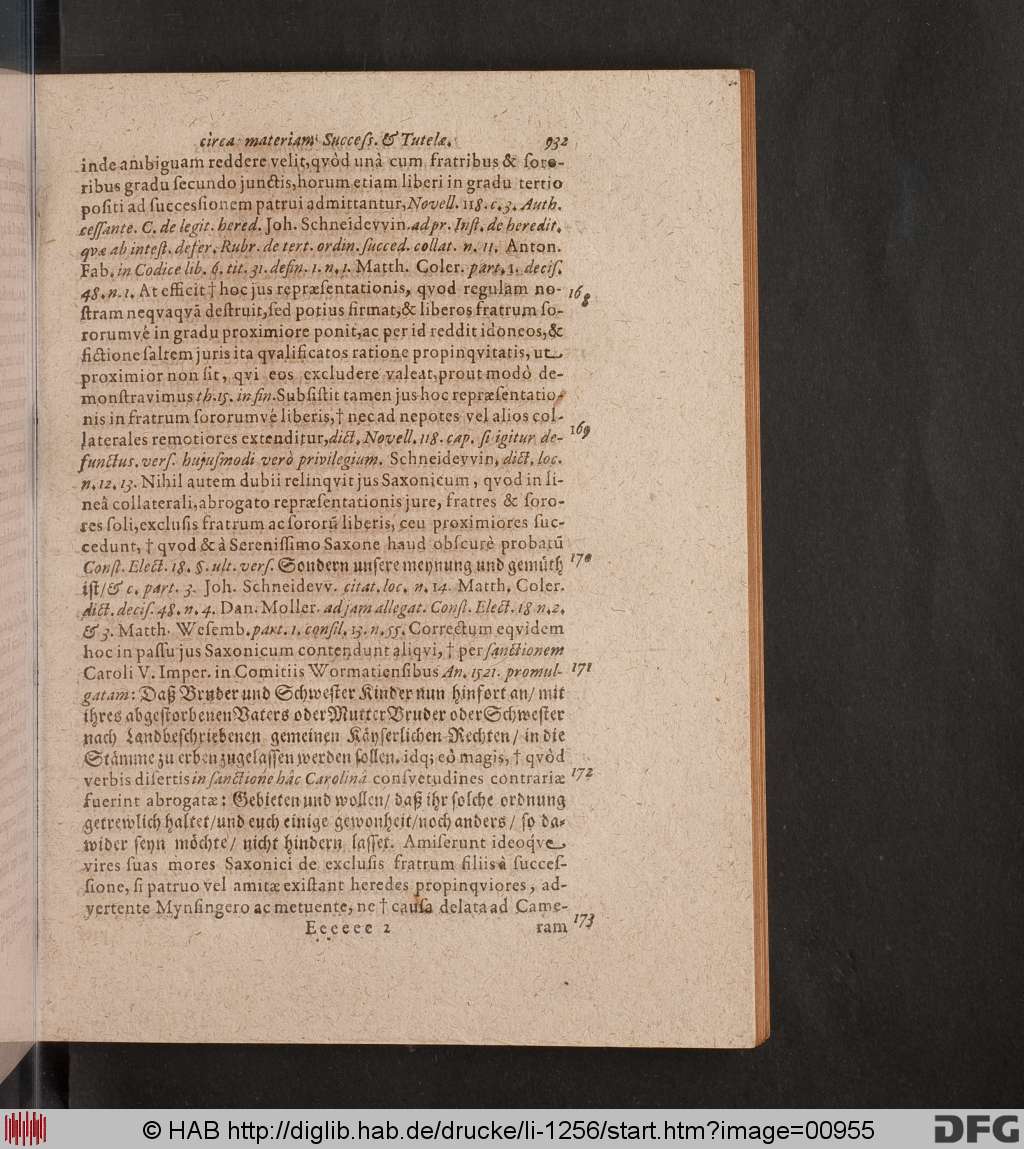 circa materiam Success. & Tutelæ. 932
inde ambiguam reddere velit, qvòd unà cum fratribus & soro-
ribus gradu secundo junctis, horum etiam liberi in gradu tertio
positi ad successionem patrui admittantur, Novell. 118. c. 3. Auth.
cessante. C. de legit. hered. Joh. Schneidevvin. ad pr. Inst. de heredit.
qvæ ab intest. defer. Rubr. de tert. ordin. succed. collat. n. 11. Anton.
Fab. in Codice lib. 6. tit. 31. defin. 1. n. 1. Matth. Coler. part. 1. decis.
48. n. 1. At efficit † hoc jus repræsentationis, qvod regulam no- 168
stram neqvaqvā destruit, sed potius firmat, & liberos fratrum so-
rorumvé in gradu proximiore ponit, ac per id reddit idoneos, &
fictione saltem juris ita qvalificatos ratione propinqvitatis, ut
proximior non sit, qvi eos excludere valeat, prout modò de-
monstravimus th. 15. in fin. Subsistit tamen jus hoc repræsentatio-
nis in fratrum sororumvé liberis, † nec ad nepotes vel alios col-
laterales remotiores extenditur, dict. Novell. 118. cap. si igitur de- 169
functus. vers. hujusmodi verò privilegium. Schneidevvin. dict. loc.
n. 12. 13. Nihil autem dubii relinqvit jus Saxonicum, qvod in li-
neâ collaterali, abrogato repræsentationis jure, fratres & soro-
res soli, exclusis fratrum ac sororū liberis, ceu proximiores suc-
cedunt, † qvod & à Serenissimo Saxone haud obscurè probatū
Const. Elect. 18. §. ult. vers. Sondern unsere meynung und gemüth 170
ist/ & c. part. 3. Joh. Schneidevv. citat. loc. n. 14. Matth. Coler.
dict. decis. 48. n. 4. Dan. Moller. ad jam allegat. Const. Elect. 18 n. 2.
& 3. Matth. Wesemb. part. 1. consil. 13. n. 55. Correctum eqvidem
hoc in passu jus Saxonicum contendunt aliqvi, † per sanctionem
Caroli V. Imper. in Comitiis Wormatiensibus An. 1521. promul- 171
gatam: Daß Bruder und Schwester Kinder nun hinfort an/ mit
ihres abgestorbenen Vaters oder Mutter Bruder oder Schwester
nach Landbeschriebenen gemeinen Käyserlichen Rechten/ in die
Stämme zu erben zugelassen werden sollen. idq; eò magis, † qvòd
verbis disertis in sanctione hâc Carolinâ consvetudines contrariæ 172
fuerint abrogatæ: Gebieten und wollen/ daß ihr solche ordnung
getrewlich haltet/ und euch einige gewonheit/ noch anders/ so da-
wider seyn möchte/ nicht hindern lasset. Amiserunt ideoq́ve
vires suas mores Saxonici de exclusis fratrum filiis à succes-
sione, si patruo vel amitæ existant heredes propinqviores, ad-
vertente Mynsingero ac metuente, ne † causa delata ad Came-
Eeeeee 2 ram 173
© HAB http://diglib.hab.de/drucke/li-1256/start.htm?image=00955
DFG